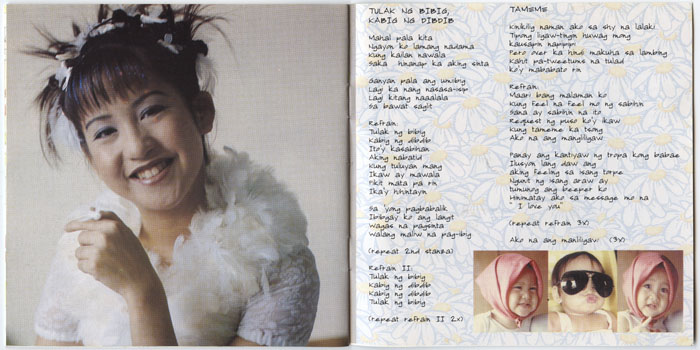 TULAK NG BIBIG,
KABIG NG DIBDIB
Mahal pala kita
Ngayon ko lamang nadama
Kung kailan nawala
Saka hinanap ka aking sinta
Ganyan pala ang umibig
Lagi ka nang nasasa-isip
Lagi kitang naaalala
Sa bawat sagit
Refrain:
Tulak ng bibig
Kabig ng dibdib
Ito'y kasabihan
Aking nabatid
Kung tuluyan mang
Ikaw ay mawala
Pikit mata pa rin
Ika'y hihintayin
Sa 'yong pagbabalik
Ibibigay ko ang langit
Wagas na pagsinta
Walang maliw na pag-ibig
(repeat 2nd stanza)
Refrain II:
Tulak ng bibig
Kabig ng dibdib
Kabig ng dibdib
Tulak ng bibig
(repeat refrain II 2x)
TAMEME
Kinikilig naman ako sa shy na lalaki
Tipong ligaw-tingin huwag mong
kausapin napipipi
Pero over ka hindi makuha sa lambing
Kahit pa-tweetums na tulad
ko'y mababato rin
Refrain:
Maari bang malaman ko
Kung feel na feel mo ng sabihin
Sana ay sabihin na ito
Request ng puso ko'y ikaw
Kung tameme ka tsong
Ako na ang manliligaw
Panay ang kantiyaw ng tropa kong babae
Ilusyon lang daw ang
aking feeling sa isang torpe
Ngunit ng isang araw ay
tumunog ang beeper ko
Hinimatay ako sa message mo na
" I love you"
(repeat refrain 3x)
Ako na ang manliligaw (3x)